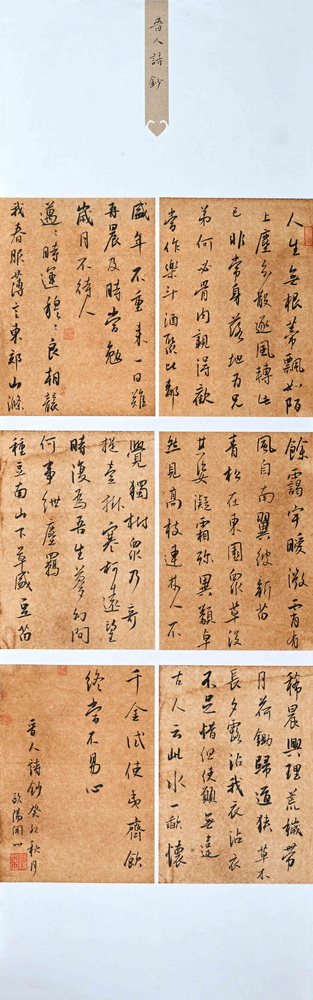 晉人詩鈔
人生無根蒂飄如陌
上塵分散逐風轉此
已非常身落地為兄
弟何必骨肉親得歡
當作樂斗酒聚比鄰
盛年不重來一日難
再晨及時當勉
歲月不待人
邁〻時運穆〻良朝襲
我春服薄言東郊山滌
餘靄宇曖微霄有
風自南翼彼新苗
青松在東園眾草沒
其姿凝霜殄異類卓
然見高枝連林人不
覺獨樹眾乃奇
提壺掛寒柯遠望
時復為吾生夢幻間
何事紲塵羈
種豆南山下草盛豆苗
稀晨興理荒穢帶
月荷鋤歸道狹草木
長夕露沾我衣沾衣
不足惜但使願無違
古人云此水一歃懷
千金試使夷齊飲
終當不易心
晉人詩鈔癸卯秋月
歐陽開